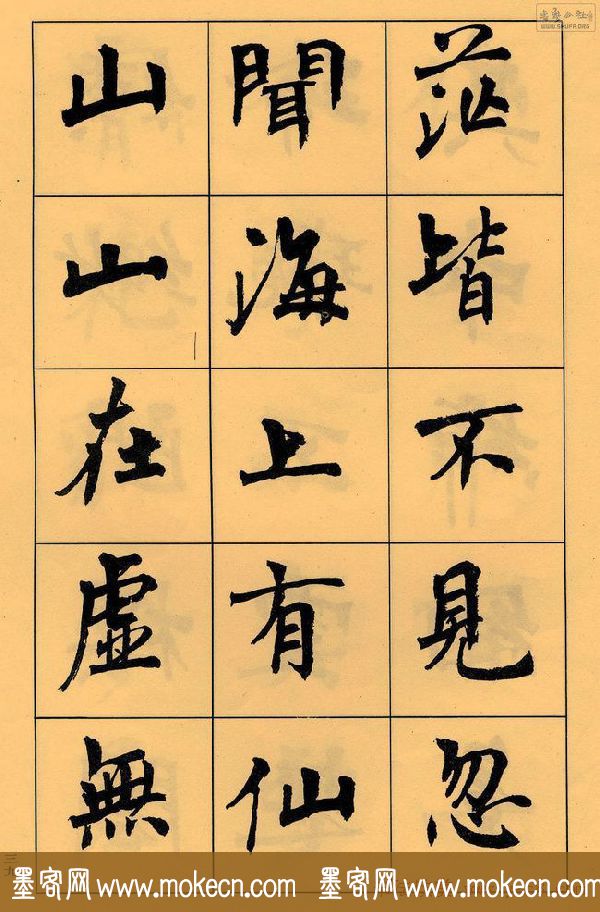 茫皆不見忽
聞海上有仙
山山在虛無
三九
WWW.SHUFA.ORG
墨客网 www.mokecn.com 墨客网 www.mokecn.com